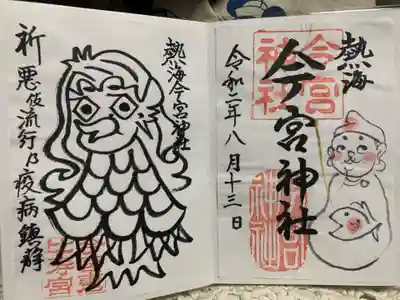 熱海
今宮神社
令和二年八月十三日
今宮
神社
熱海今宮神社
祈 悪役流行乃疫病鎮静